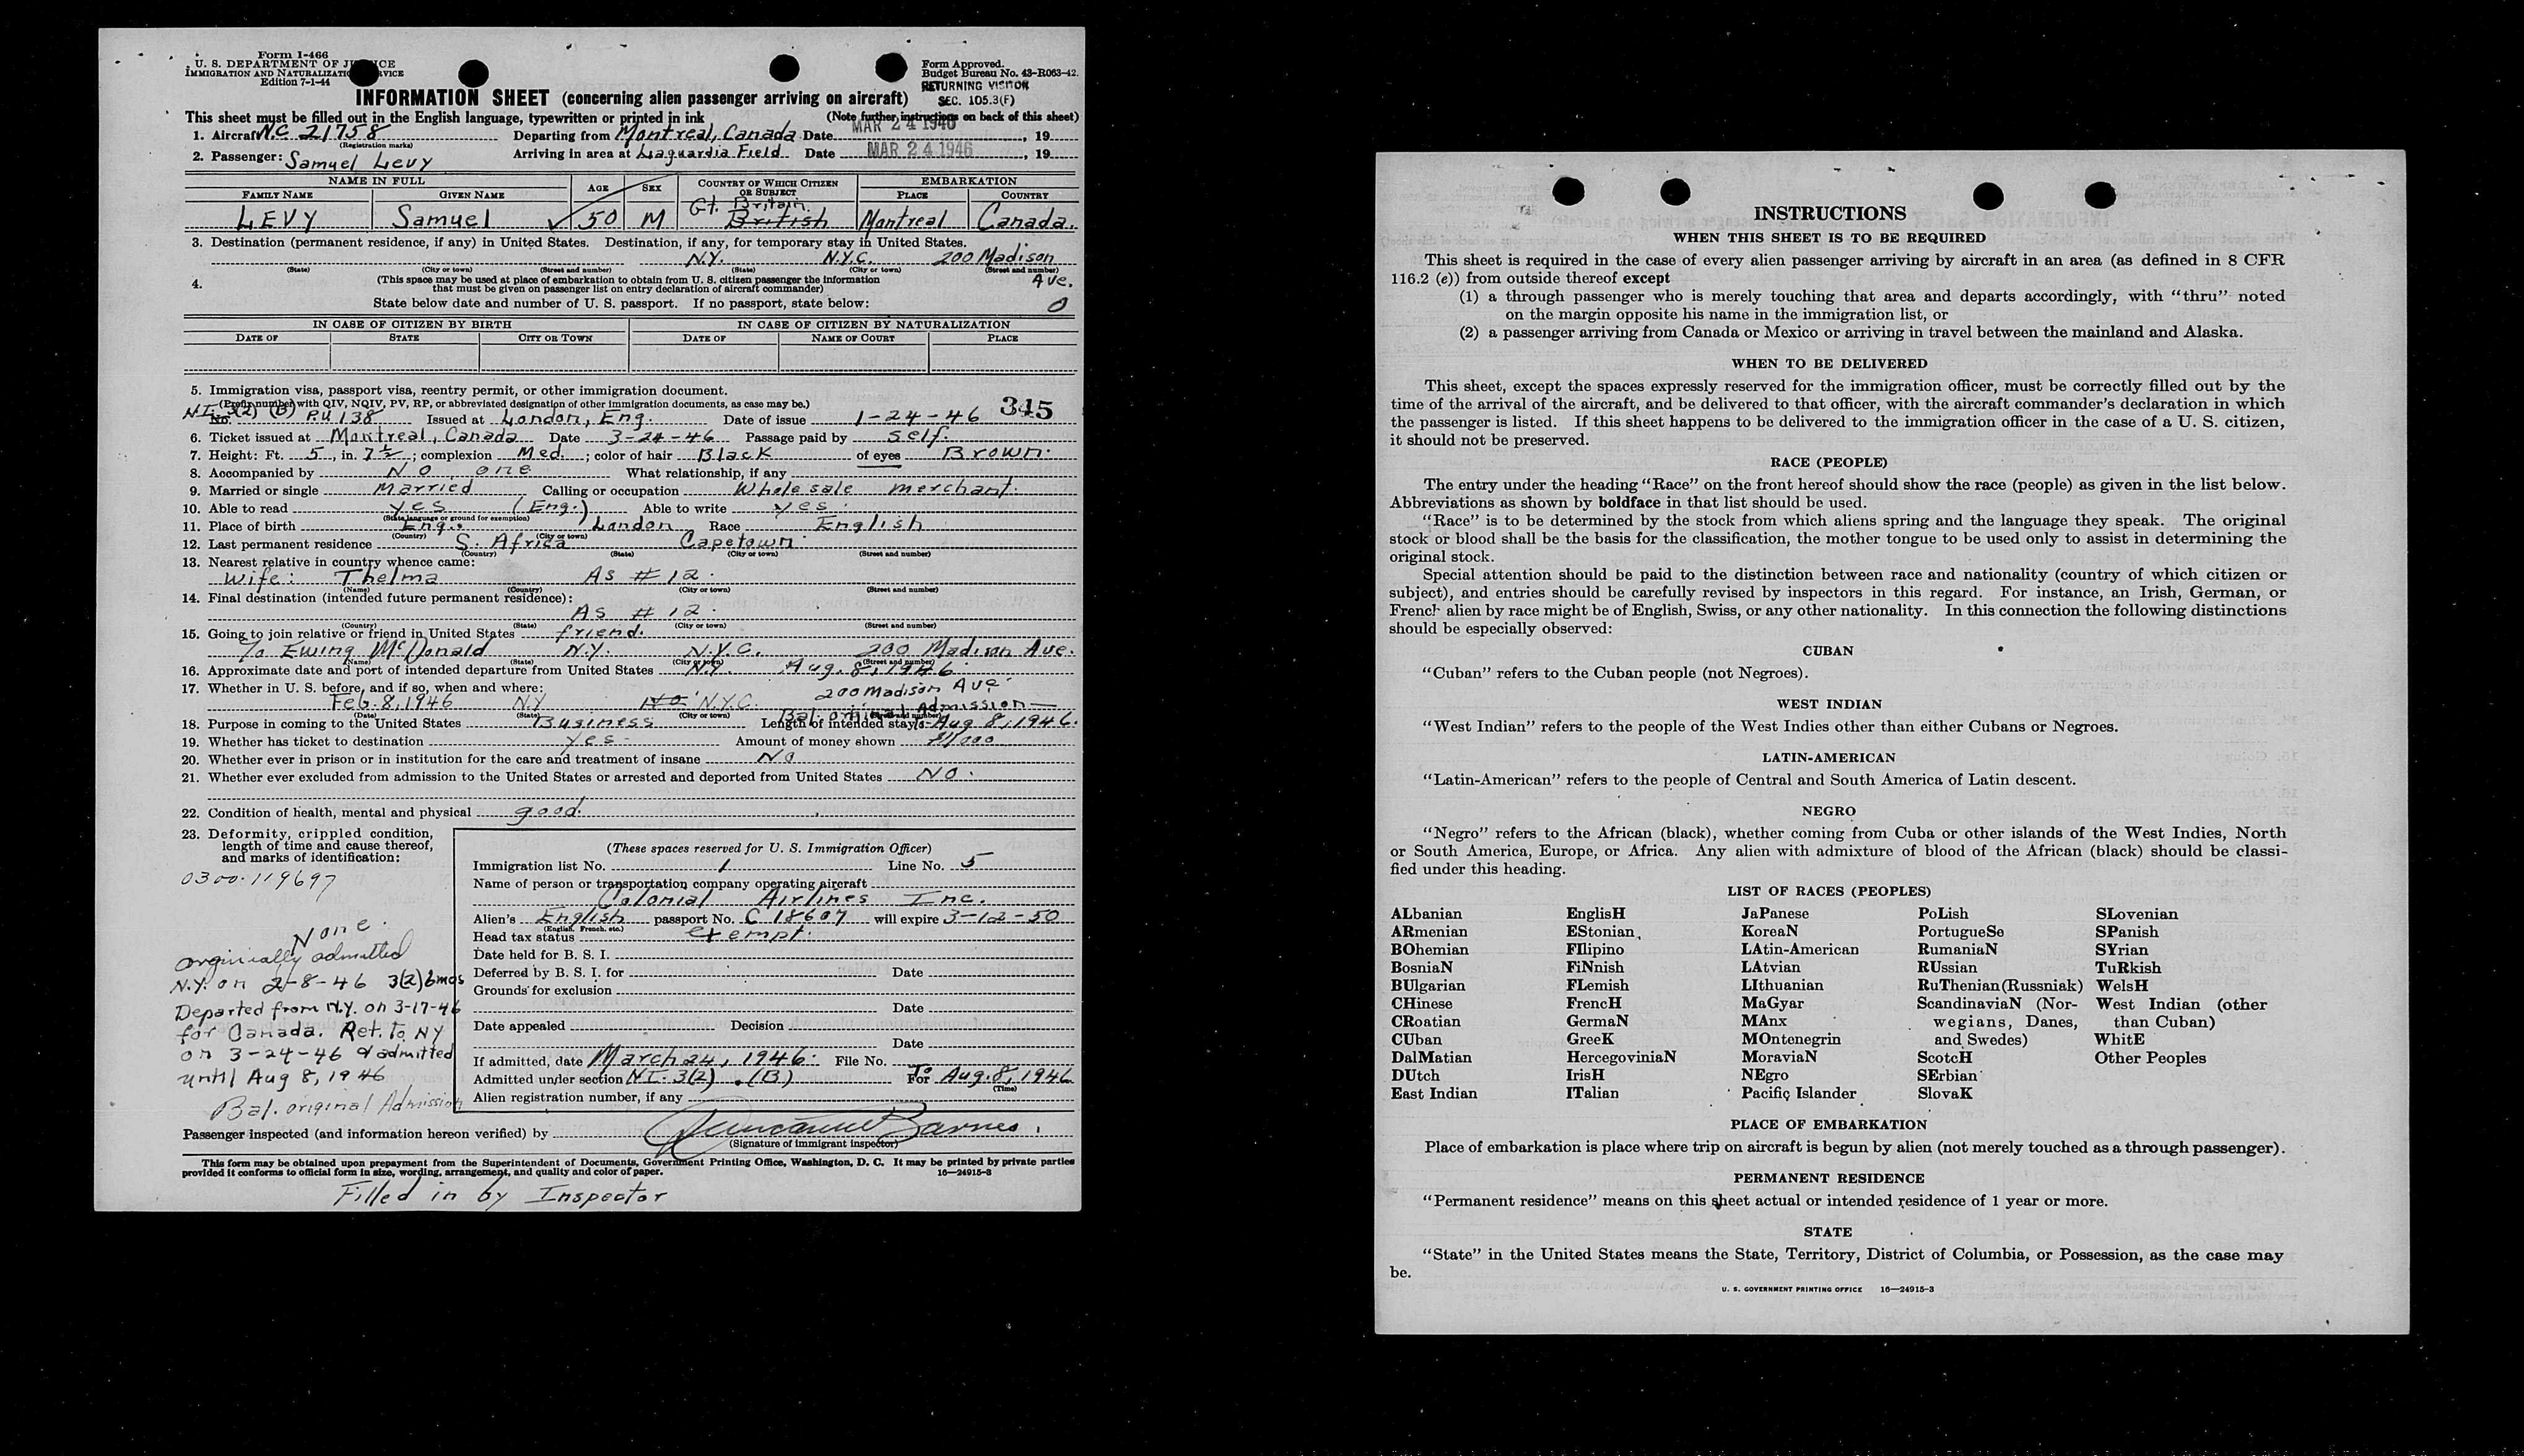 Form 1-466
U. S. DEPARTMENT OF JUSTICE
IMMIGRATION AND NATURALIZATION SERVICE
Edition 7-1-44
Form Approved.
Budget Bureau No. 43-R063-42.
RETURNING VISITOR
SEC. 105.3(F)
INFORMATION SHEET (concerning alien passenger arriving on aircraft)
This sheet must be filled out in the English language, typewritten or printed in ink (Note further instructions on back of this sheet)
1. Aircraft NC 21758 Departing from Montreal, Canada Date MAR 24 1946, 19
(Registration marks)
2. Passenger: Samuel Levy Arriving in area at Laguardia Field Date MAR 24 1946, 19
NAME IN FULL AGE SEX COUNTRY OF WHICH CITIZEN OR SUBJECT EMBARKATION
FAMILY NAME GIVEN NAME PLACE COUNTRY
Gt. Britain
LEVY Samuel ✓ 50 M British Montreal Canada.
3. Destination (permanent residence, if any) in United States. Destination, if any, for temporary stay in United States.
N.Y. N.Y.C. 200 Madison
(State) (City or town) (Street and number) (State) (City or town) (Street and number)
Ave.
4. (This space may be used at place of embarkation to obtain from U. S. citizen passenger the information
that must be given on passenger list on entry declaration of aircraft commander)
State below date and number of U. S. passport. If no passport, state below: 0
IN CASE OF CITIZEN BY BIRTH IN CASE OF CITIZEN BY NATURALIZATION
DATE OF STATE CITY OR TOWN DATE OF NAME OF COURT PLACE
5. Immigration visa, passport visa, reentry permit, or other immigration document.
(Prefix number with QIV, NQIV, PV, RP, or abbreviated designation of other immigration documents, as case may be.) 345
NI 3(2) (B)
No. P.U 138 Issued at London, Eng. Date of issue 1-24-46
6. Ticket issued at Montreal, Canada Date 3-24-46 Passage paid by self.
7. Height: Ft. 5, in. 7½; complexion Med.; color of hair Black of eyes Brown.
8. Accompanied by No one What relationship, if any
9. Married or single Married Calling or occupation Wholesale merchant.
10. Able to read yes (Eng.) Able to write yes.
(State language or ground for exemption)
11. Place of birth Eng., London Race English
(Country) (City or town)
12. Last permanent residence S. Africa Capetown
(Country) (State) (City or town) (Street and number)
13. Nearest relative in country whence came:
Wife: Thelma As # 12.
(Name) (Country) (City or town) (Street and number)
14. Final destination (intended future permanent residence):
As # 12.
(Country) (State) (City or town) (Street and number)
15. Going to join relative or friend in United States friend.
c/o Ewing McDonald N.Y. N.Y.C. 200 Madison Ave.
(Name) (State) (City or town) (Street and number)
16. Approximate date and port of intended departure from United States N.Y. Aug. 8, 1946.
17. Whether in U. S. before, and if so, when and where: 200 Madison Ave
Feb. 8, 1946 N.Y N.Y.C.
(Date) (State) (City or town) (Street and number)
Bal. original Admission
18. Purpose in coming to the United States Business Length of intended stay to Aug 8, 1946.
19. Whether has ticket to destination yes Amount of money shown $1,000
20. Whether ever in prison or in institution for the care and treatment of insane No
21. Whether ever excluded from admission to the United States or arrested and deported from United States No.
22. Condition of health, mental and physical good.
23. Deformity, crippled condition,
length of time and cause thereof,
and marks of identification:
0300-119697
None.
orginically admitted
N.Y. on 2-8-46 3(2) 6mos
Departed from N.Y. on 3-17-46
for Canada. Ret. to NY
on 3-24-46 & admitted
until Aug 8, 1946
Bal. original Admission
(These spaces reserved for U. S. Immigration Officer)
Immigration list No. 1 Line No. 5
Name of person or transportation company operating aircraft
Colonial Airlines Inc.
Alien's English passport No. C 18607 will expire 3-12-50
(English, French, etc.)
Head tax status exempt.
Date held for B. S. I.
Deferred by B. S. I. for Date
Grounds for exclusion
Date
Date appealed Decision
Date
If admitted, date March 24, 1946. File No.
Admitted under section NI. 3(2). (B) For To Aug. 8, 1946
(Time)
Alien registration number, if any
Passenger inspected (and information hereon verified) by Barnes
(Signature of immigrant inspector)
This form may be obtained upon prepayment from the Superintendent of Documents, Government Printing Office, Washington, D. C. It may be printed by private parties
provided it conforms to official form in size, wording, arrangement, and quality and color of paper. 16—24915-3
Filled in by Inspector
INSTRUCTIONS
WHEN THIS SHEET IS TO BE REQUIRED
This sheet is required in the case of every alien passenger arriving by aircraft in an area (as defined in 8 CFR
116.2 (e)) from outside thereof except
(1) a through passenger who is merely touching that area and departs accordingly, with "thru" noted
on the margin opposite his name in the immigration list, or
(2) a passenger arriving from Canada or Mexico or arriving in travel between the mainland and Alaska.
WHEN TO BE DELIVERED
This sheet, except the spaces expressly reserved for the immigration officer, must be correctly filled out by the
time of the arrival of the aircraft, and be delivered to that officer, with the aircraft commander's declaration in which
the passenger is listed. If this sheet happens to be delivered to the immigration officer in the case of a U. S. citizen,
it should not be preserved.
RACE (PEOPLE)
The entry under the heading "Race" on the front hereof should show the race (people) as given in the list below.
Abbreviations as shown by boldface in that list should be used.
"Race" is to be determined by the stock from which aliens spring and the language they speak. The original
stock or blood shall be the basis for the classification, the mother tongue to be used only to assist in determining the
original stock.
Special attention should be paid to the distinction between race and nationality (country of which citizen or
subject), and entries should be carefully revised by inspectors in this regard. For instance, an Irish, German, or
French alien by race might be of English, Swiss, or any other nationality. In this connection the following distinctions
should be especially observed:
CUBAN
"Cuban" refers to the Cuban people (not Negroes).
WEST INDIAN
"West Indian" refers to the people of the West Indies other than either Cubans or Negroes.
LATIN-AMERICAN
"Latin-American" refers to the people of Central and South America of Latin descent.
NEGRO
"Negro" refers to the African (black), whether coming from Cuba or other islands of the West Indies, North
or South America, Europe, or Africa. Any alien with admixture of blood of the African (black) should be classi-
fied under this heading.
LIST OF RACES (PEOPLES)
ALbanian EnglisH JaPanese PoLish SLovenian
ARmenian EStonian KoreaN PortugueSe SPanish
BOhemian FIlipino LAtin-American RumaniaN SYrian
BosniaN FiNnish LAtvian RUssian TuRkish
BUlgarian FLemish LIthuanian RuThenian (Russniak) WelsH
CHinese FrencH MaGyar ScandinaviaN (Nor- West Indian (other
CRoatian GermaN MAnx wegians, Danes, than Cuban)
CUban GreeK MOntenegrin and Swedes) WhitE
DalMatian HercegoviniaN MoraviaN ScotcH Other Peoples
DUtch IrisH NEgro SErbian
East Indian ITalian Pacific Islander SlovaK
PLACE OF EMBARKATION
Place of embarkation is place where trip on aircraft is begun by alien (not merely touched as a through passenger).
PERMANENT RESIDENCE
"Permanent residence" means on this sheet actual or intended residence of 1 year or more.
STATE
"State" in the United States means the State, Territory, District of Columbia, or Possession, as the case may
be.
U. S. GOVERNMENT PRINTING OFFICE 16—24915-3